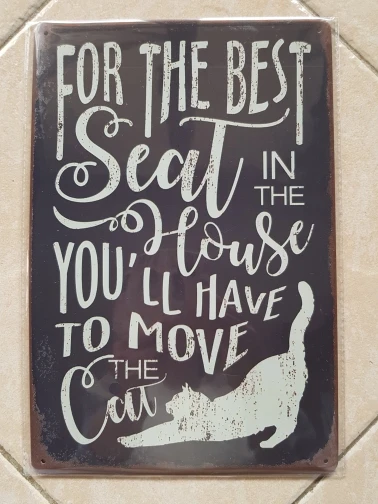 FOR THE BEST
Seat IN
THE
House
YOU'LL HAVE
TO MOVE
THE
Cat